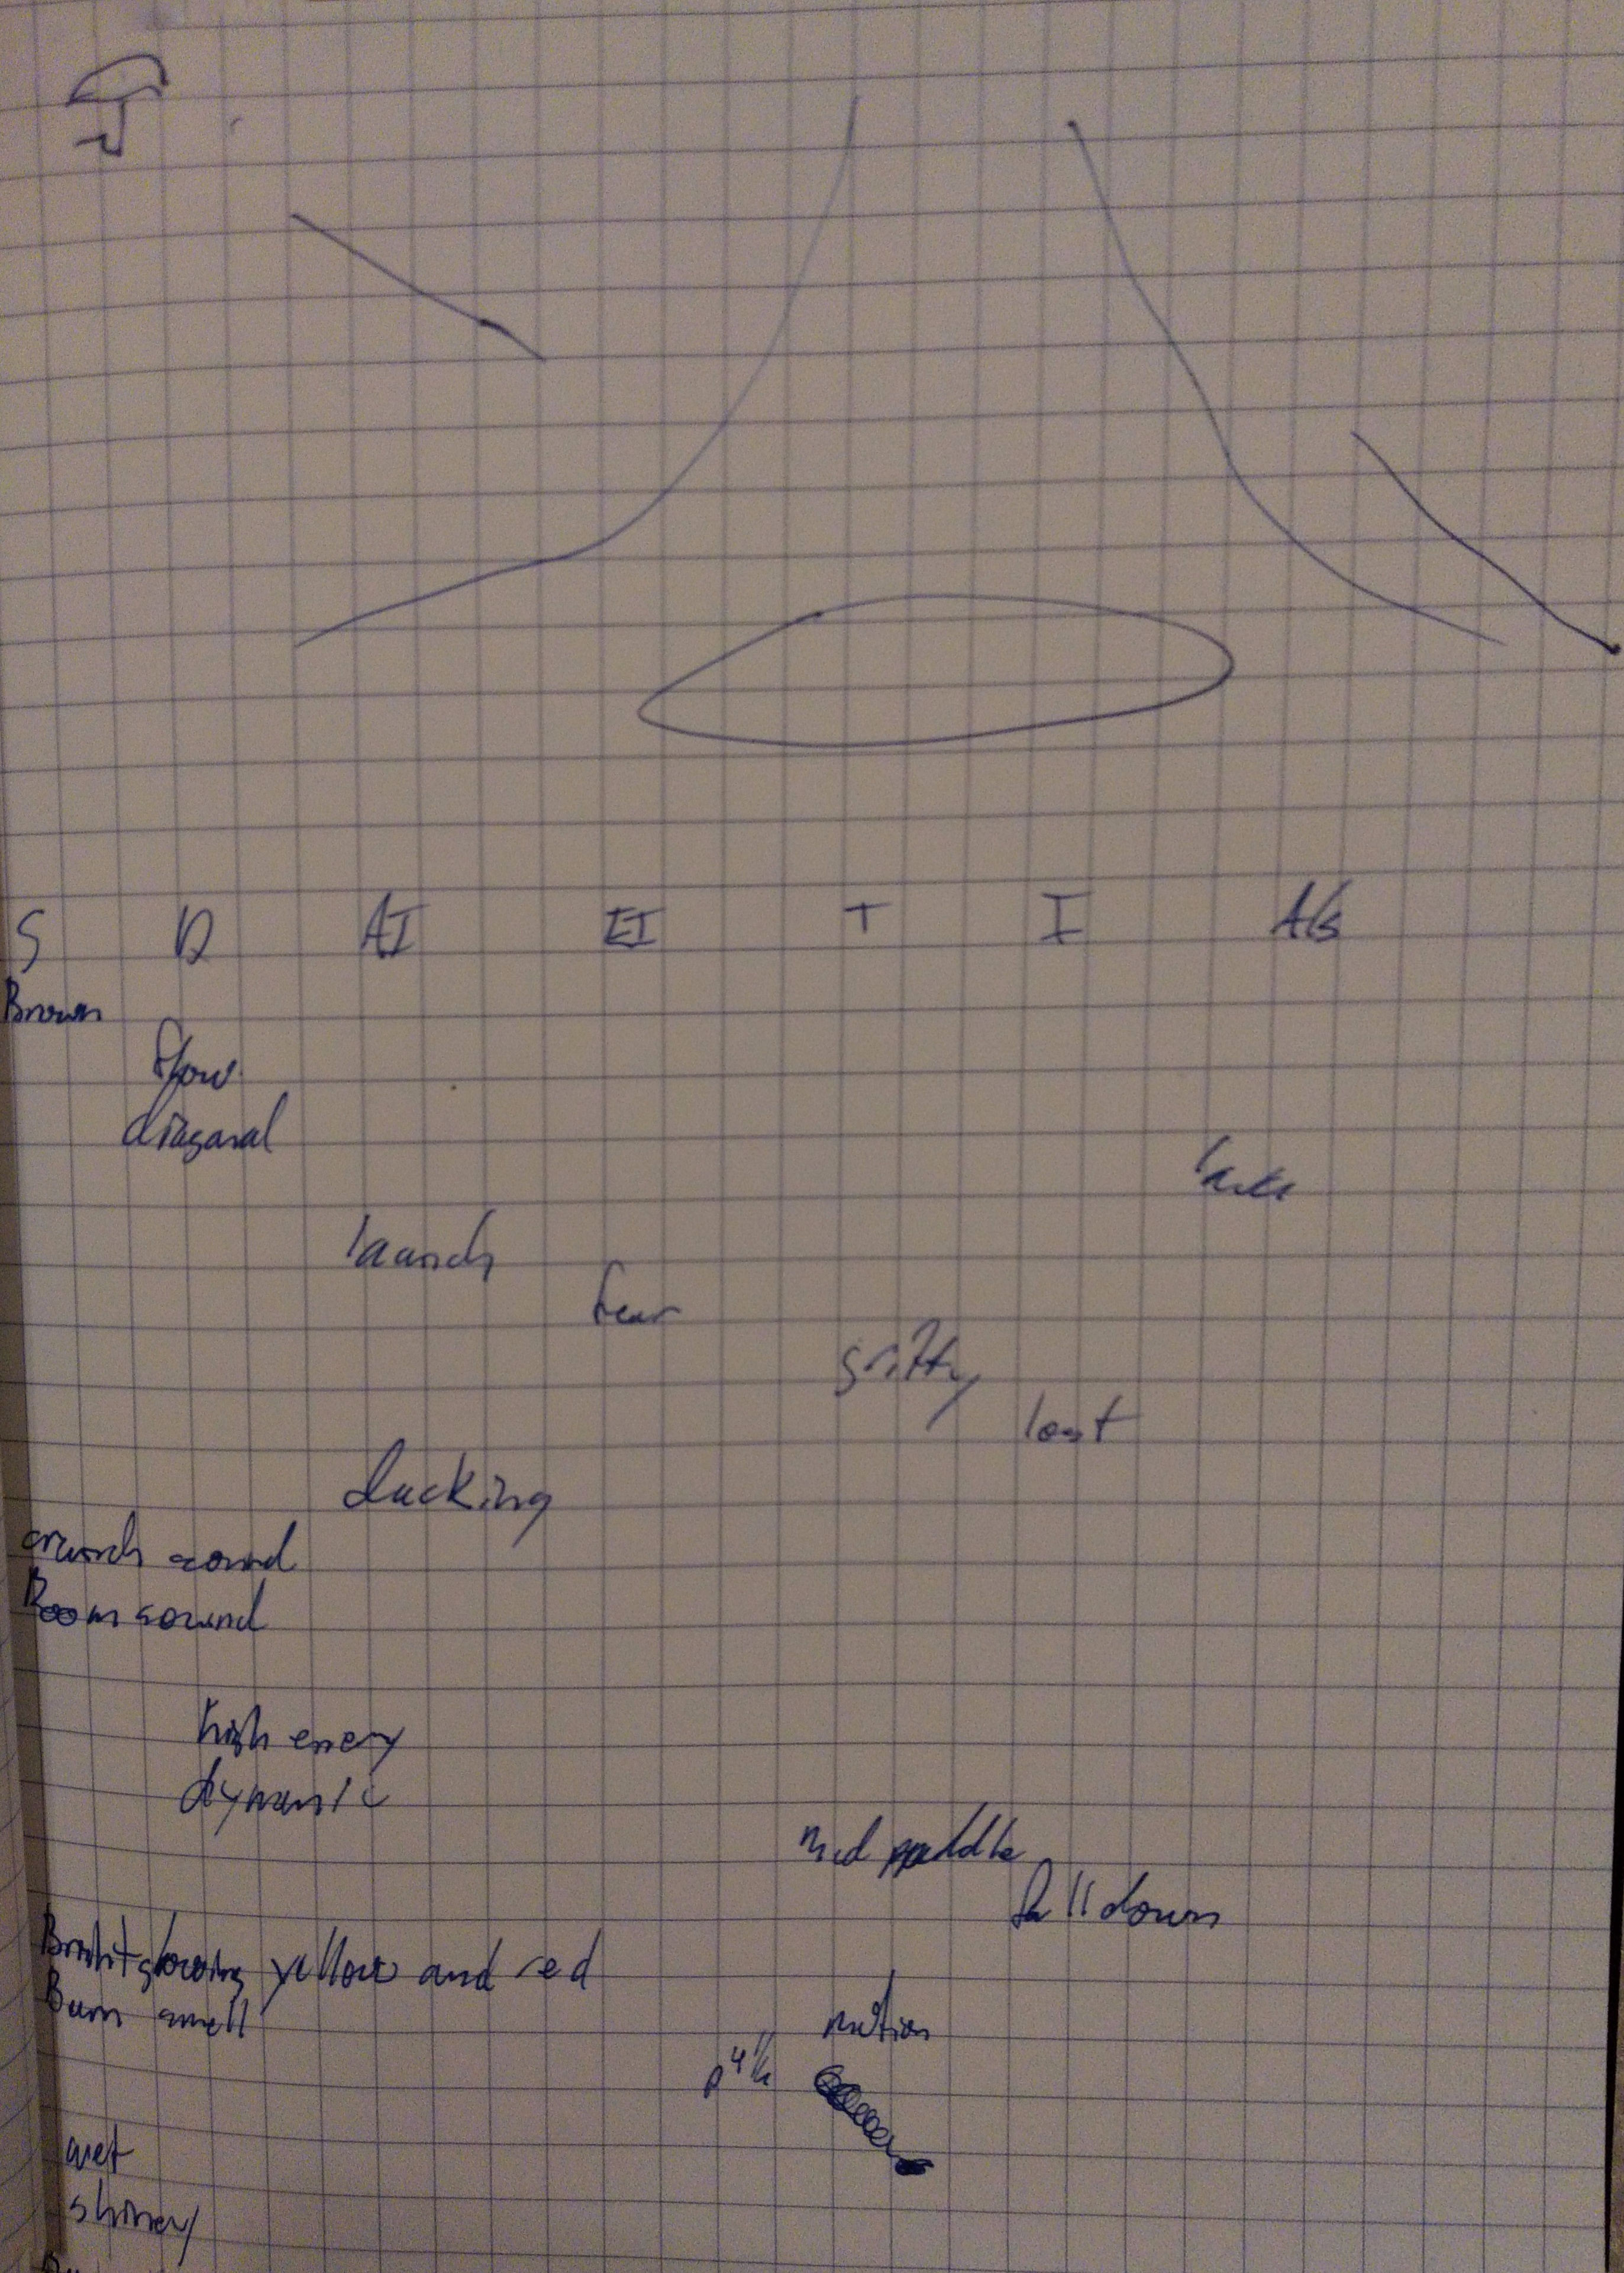 S D AI EI T I A/G
Brown
flow
diagonal
launch
fear
gritty
lost
ducking
crunch sound
Boom sound
high enery
dynamic
mud puddle
fall down
yellow and red
Burn smell
motion
wet
shiney